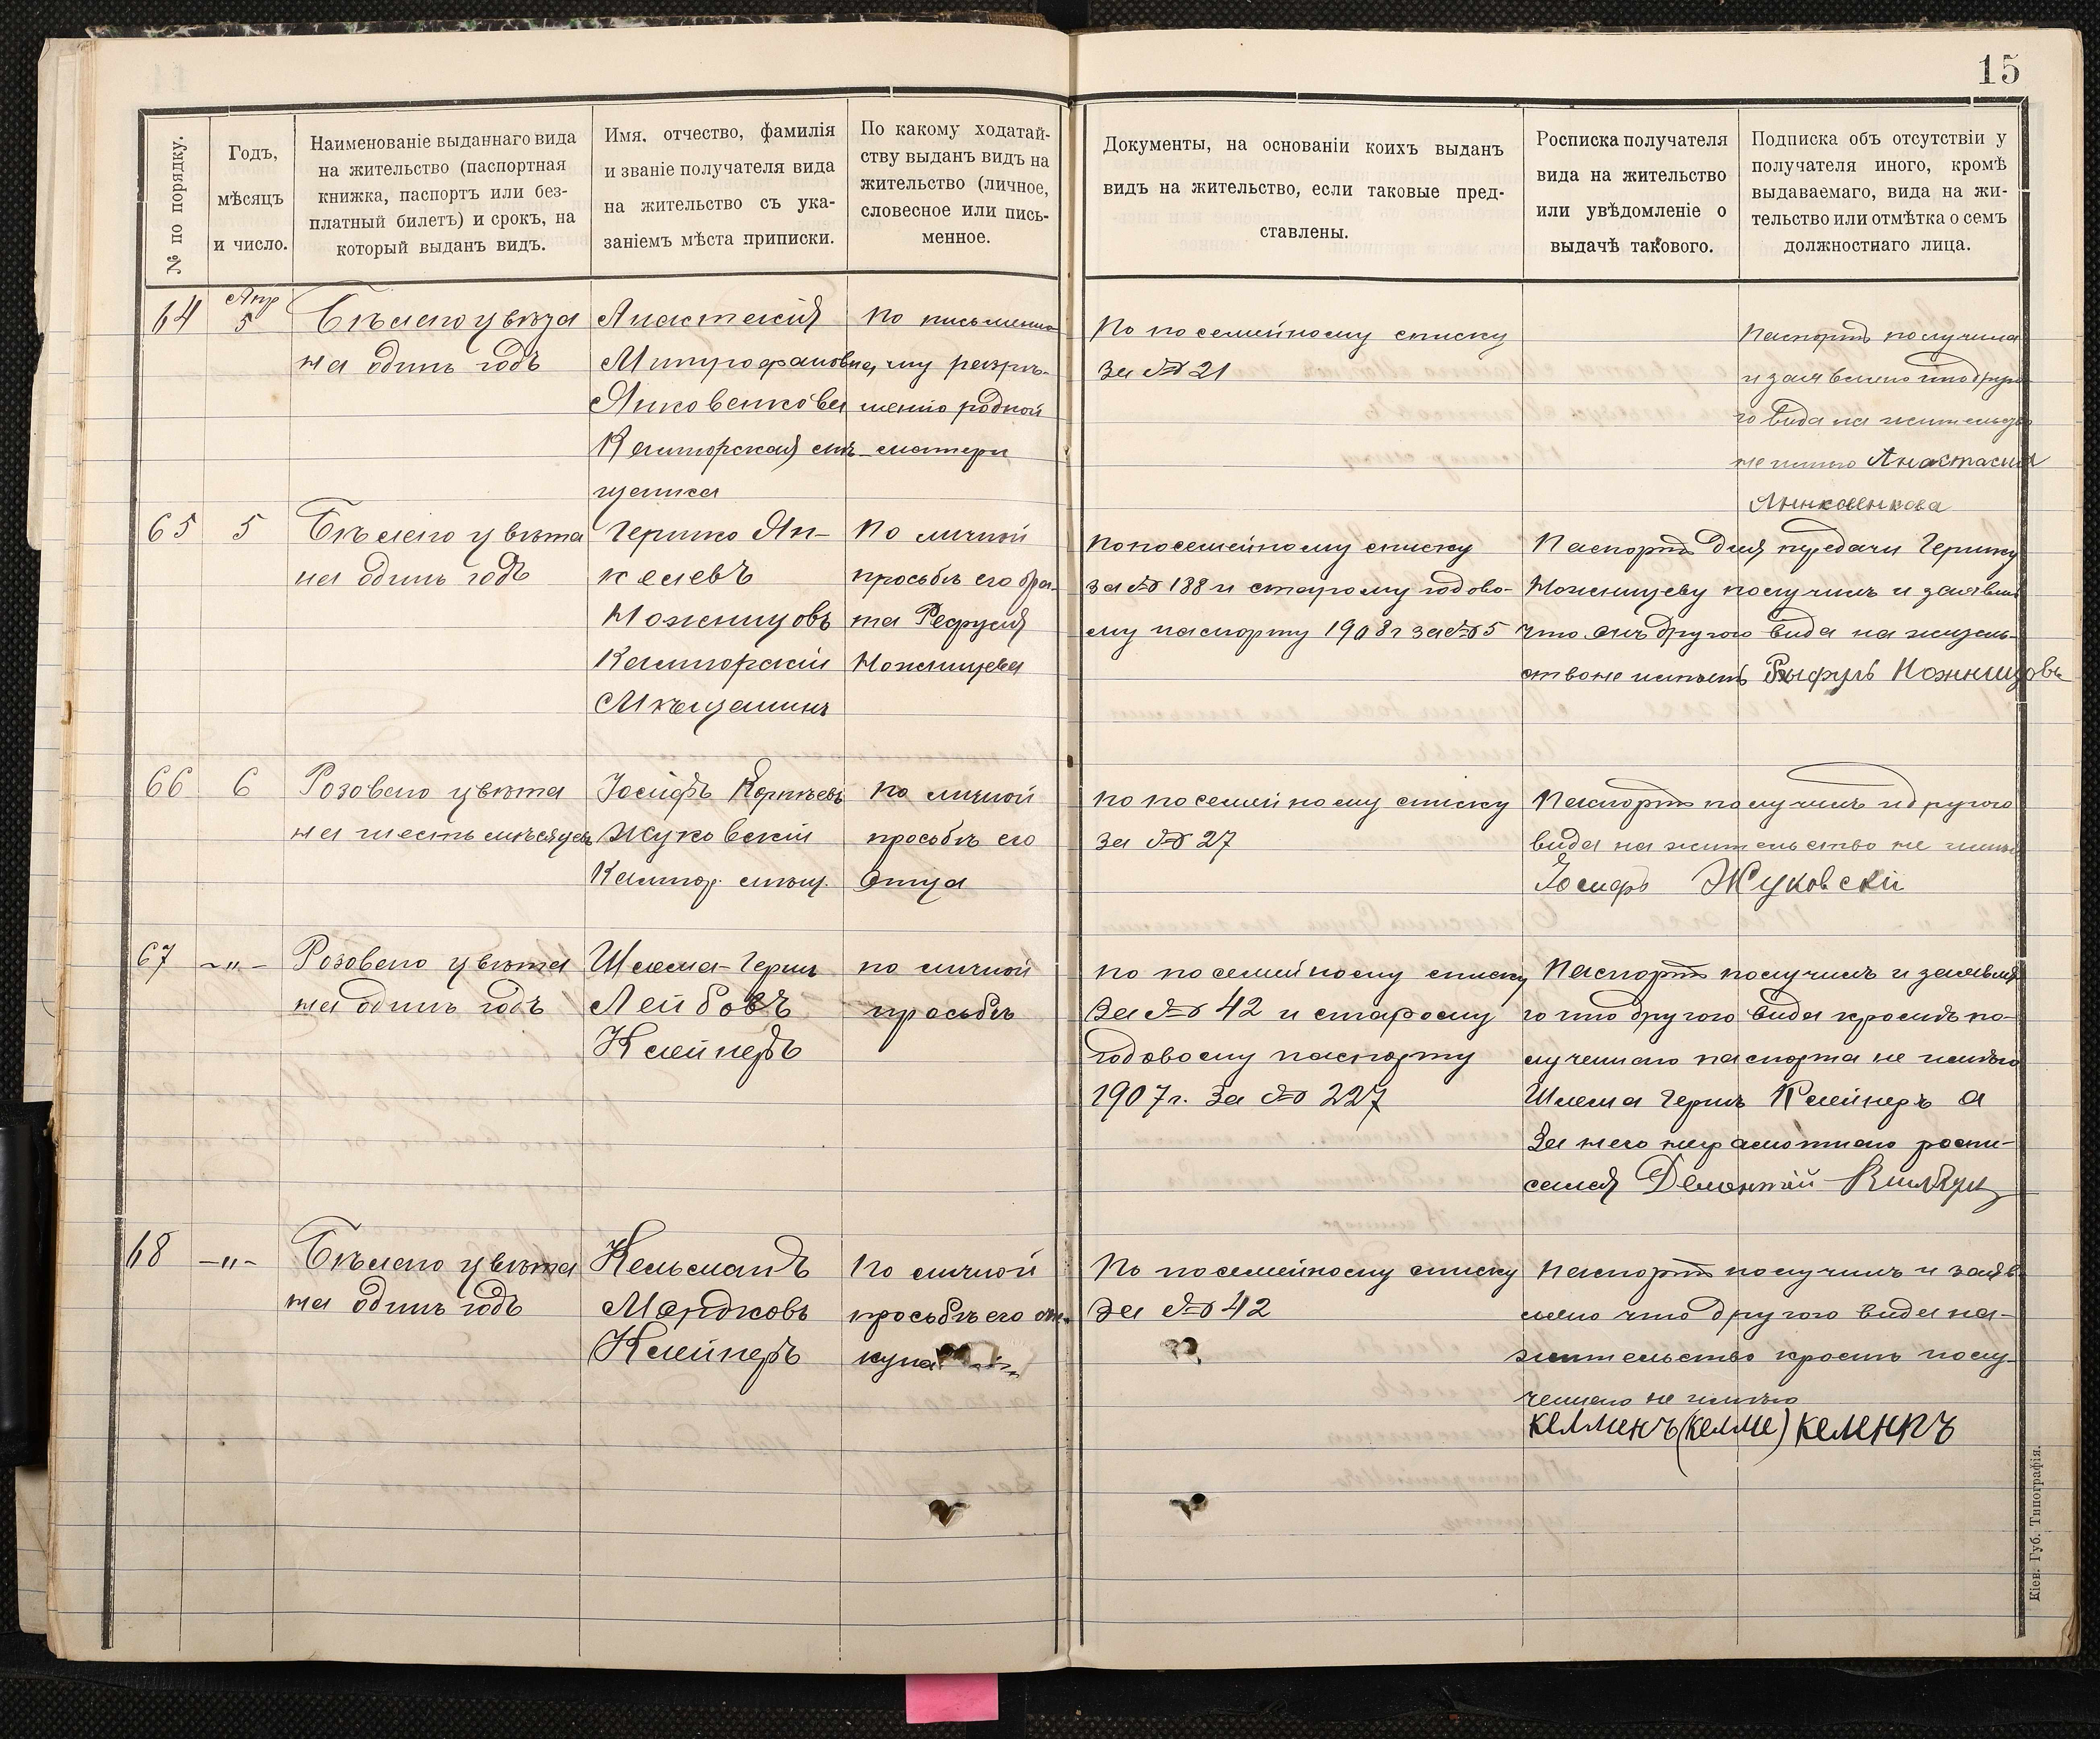 15
№ по порядку.
Годъ,
мѣсяцъ
и число.
Наименованіе выданнаго вида
на жительство (паспортная
книжка, паспортъ или без-
платный билетъ) и срокъ, на
который выданъ видъ.
Имя, отчество, фамилія
и званіе получателя вида
на жительство съ ука-
заніемъ мѣста приписки.
По какому ходатай-
ству выданъ видъ на
жительство (личное,
словесное или пись-
менное.
Документы, на основаніи коихъ выданъ
видъ на жительство, если таковые пред-
ставлены.
Росписка получателя
вида на жительство
или увѣдомленіе о
выдачѣ такового.
Подписка объ отсутствіи у
получателя иного, кромѣ
выдаваемаго, вида на жи-
тельство или отмѣтка о семъ
должностнаго лица.
64
Апр
5
Бѣлаго цвѣта
на одинъ годъ
Анастасія
Митрофановна,
Янковенкова
Канторская мѣ-
щанка
По письменно-
му разрѣ-
шенію родной
матери
По посемейному списку
за № 21
Паспортъ получила
и заявлено что друго-
го вида на жительство
не имѣю Анастасия
Янковенкова
65
5
Бѣлаго цвѣта
на одинъ годъ
Гершко Ян-
келевъ
Ножницовъ
Канторскій
Мѣщанинъ
По личной
просьбѣ его бра-
та Рефуля
Ножницева
По посемейному списку
за № 138 и старому годово-
му паспорту 1908 г за № 5
Паспортъ для передачи Гершку
Ножницеву получилъ и заявилъ
что онъ другого вида на житель-
ство не имѣетъ Рыфулъ Ножницовъ
66
6
Розоваго цвѣта
на шесть мѣсяцевъ
Іосифъ Корнѣевъ
Жуковскій
Кантор. мѣщ.
По личной
просьбѣ его
Отца
По посемейному списку
за № 27
Паспортъ получилъ и другого
вида на жительство не имѣю
Иосифъ Жуковскій
67
-„-
Розоваго цвѣта
на одинъ годъ
Шлема-Гершъ
Лейбовъ
Клейнеръ
по личной
просьбѣ
по посемейному списку
за № 42 и старому
годовому паспорту
1907 г. за № 227
Паспортъ получилъ и заявля
ю что другого вида кромѣ по-
лученнаго паспорта не имѣю
Шлема Гершъ Клейнеръ а
За него неграмотнаго роспи-
сался
68
-„-
Бѣлаго цвѣта
на одинъ годъ
Кельманъ
Мордковъ
Клейнеръ
По личной
просьбѣ его опе-
куна
По посемейному списку
за № 42
Паспортъ получилъ и заяв-
лено что другого вида на-
жительство кромѣ полу-
ченнаго не имѣю
Келменъ (Келме) Келенръ
Кіев. Губ. Типографія.